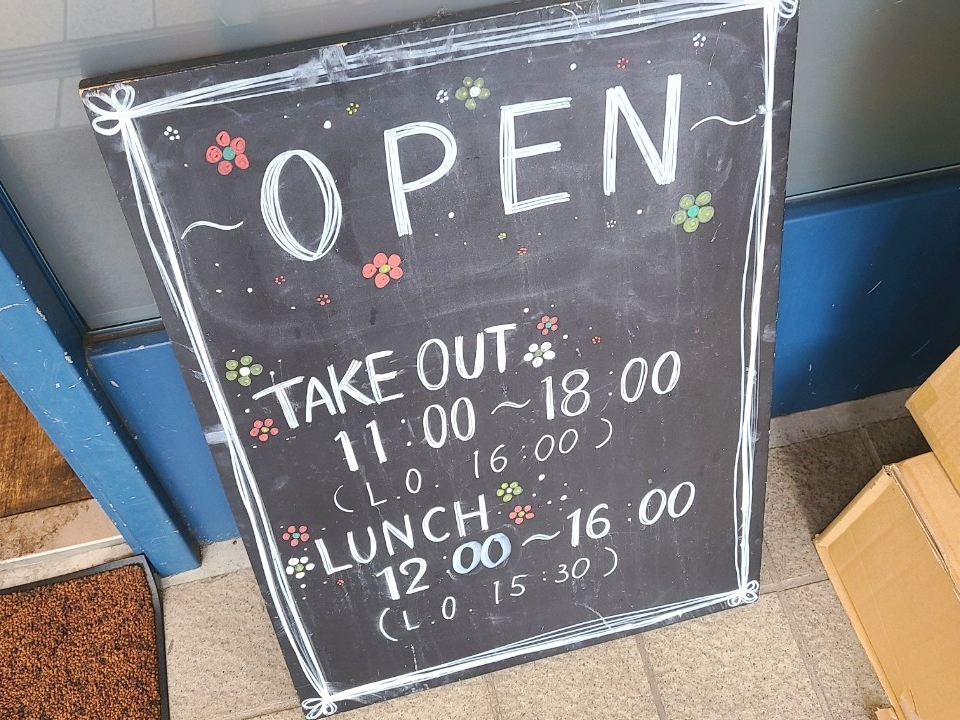 ~OPEN~
TAKE OUT
11:00~18:00
(L.O. 16:00)
LUNCH
12:00~16:00
(L.O. 15:30)